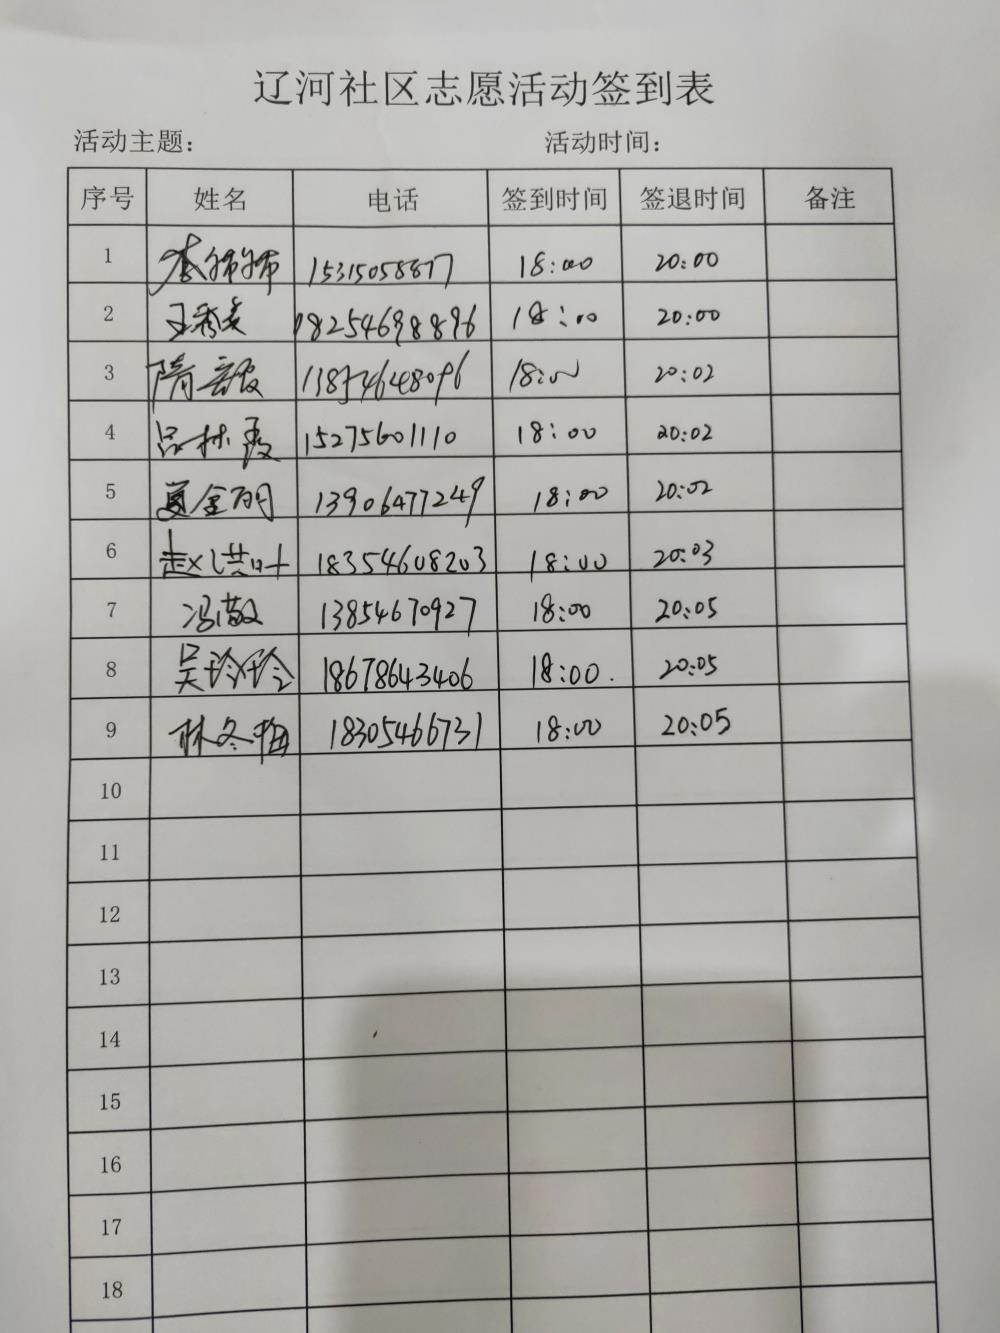 辽河社区志愿活动签到表
活动主题： 活动时间：
序号 姓名 电话 签到时间 签退时间 备注
1 李娜娜 15315058877 18:00 20:00
2 王秀美 18254698896 18:00 20:00
3 隋 18:00 20:02
4 吕林霞 15275601110 18:00 20:02
5 夏金明 13906477249 18:00 20:02
6 赵洪叶 18354608203 18:00 20:03
7 冯敬 13854670927 18:00 20:05
8 吴玲玲 18678643406 18:00. 20:05
9 林冬梅 18305466731 18:00 20:05
10
11
12
13
14
15
16
17
18